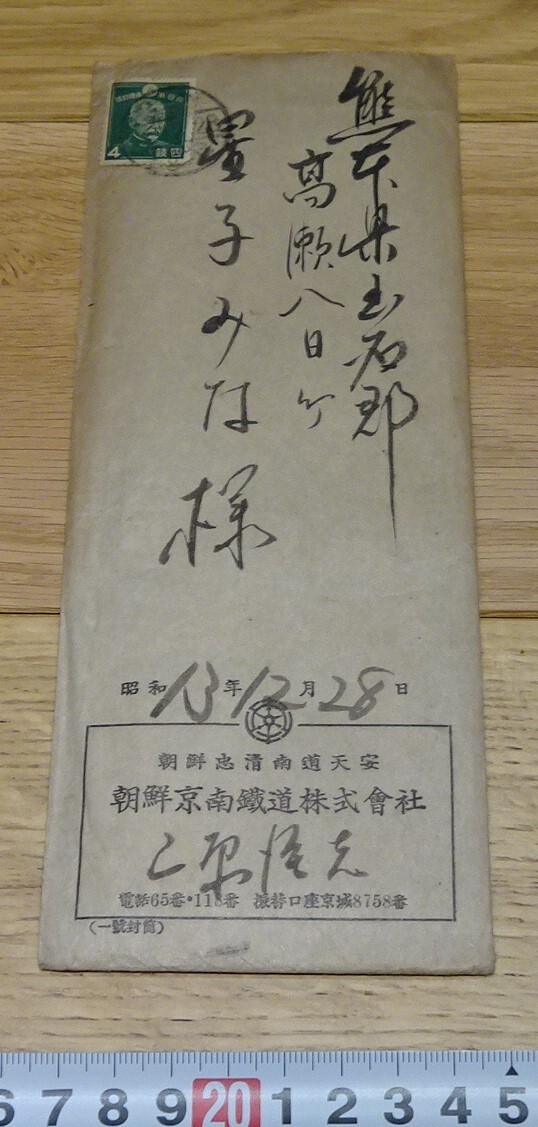 熊本県玉名郡
高瀬八日ケ
みな様
四銭
4
昭和13年12月28日
朝鮮忠清南道天安
朝鮮京南鐵道株式會社
電話65番・118番 振替口座京城8758番
(一號封筒)
6 7 8 9 20 1 2 3 4 5